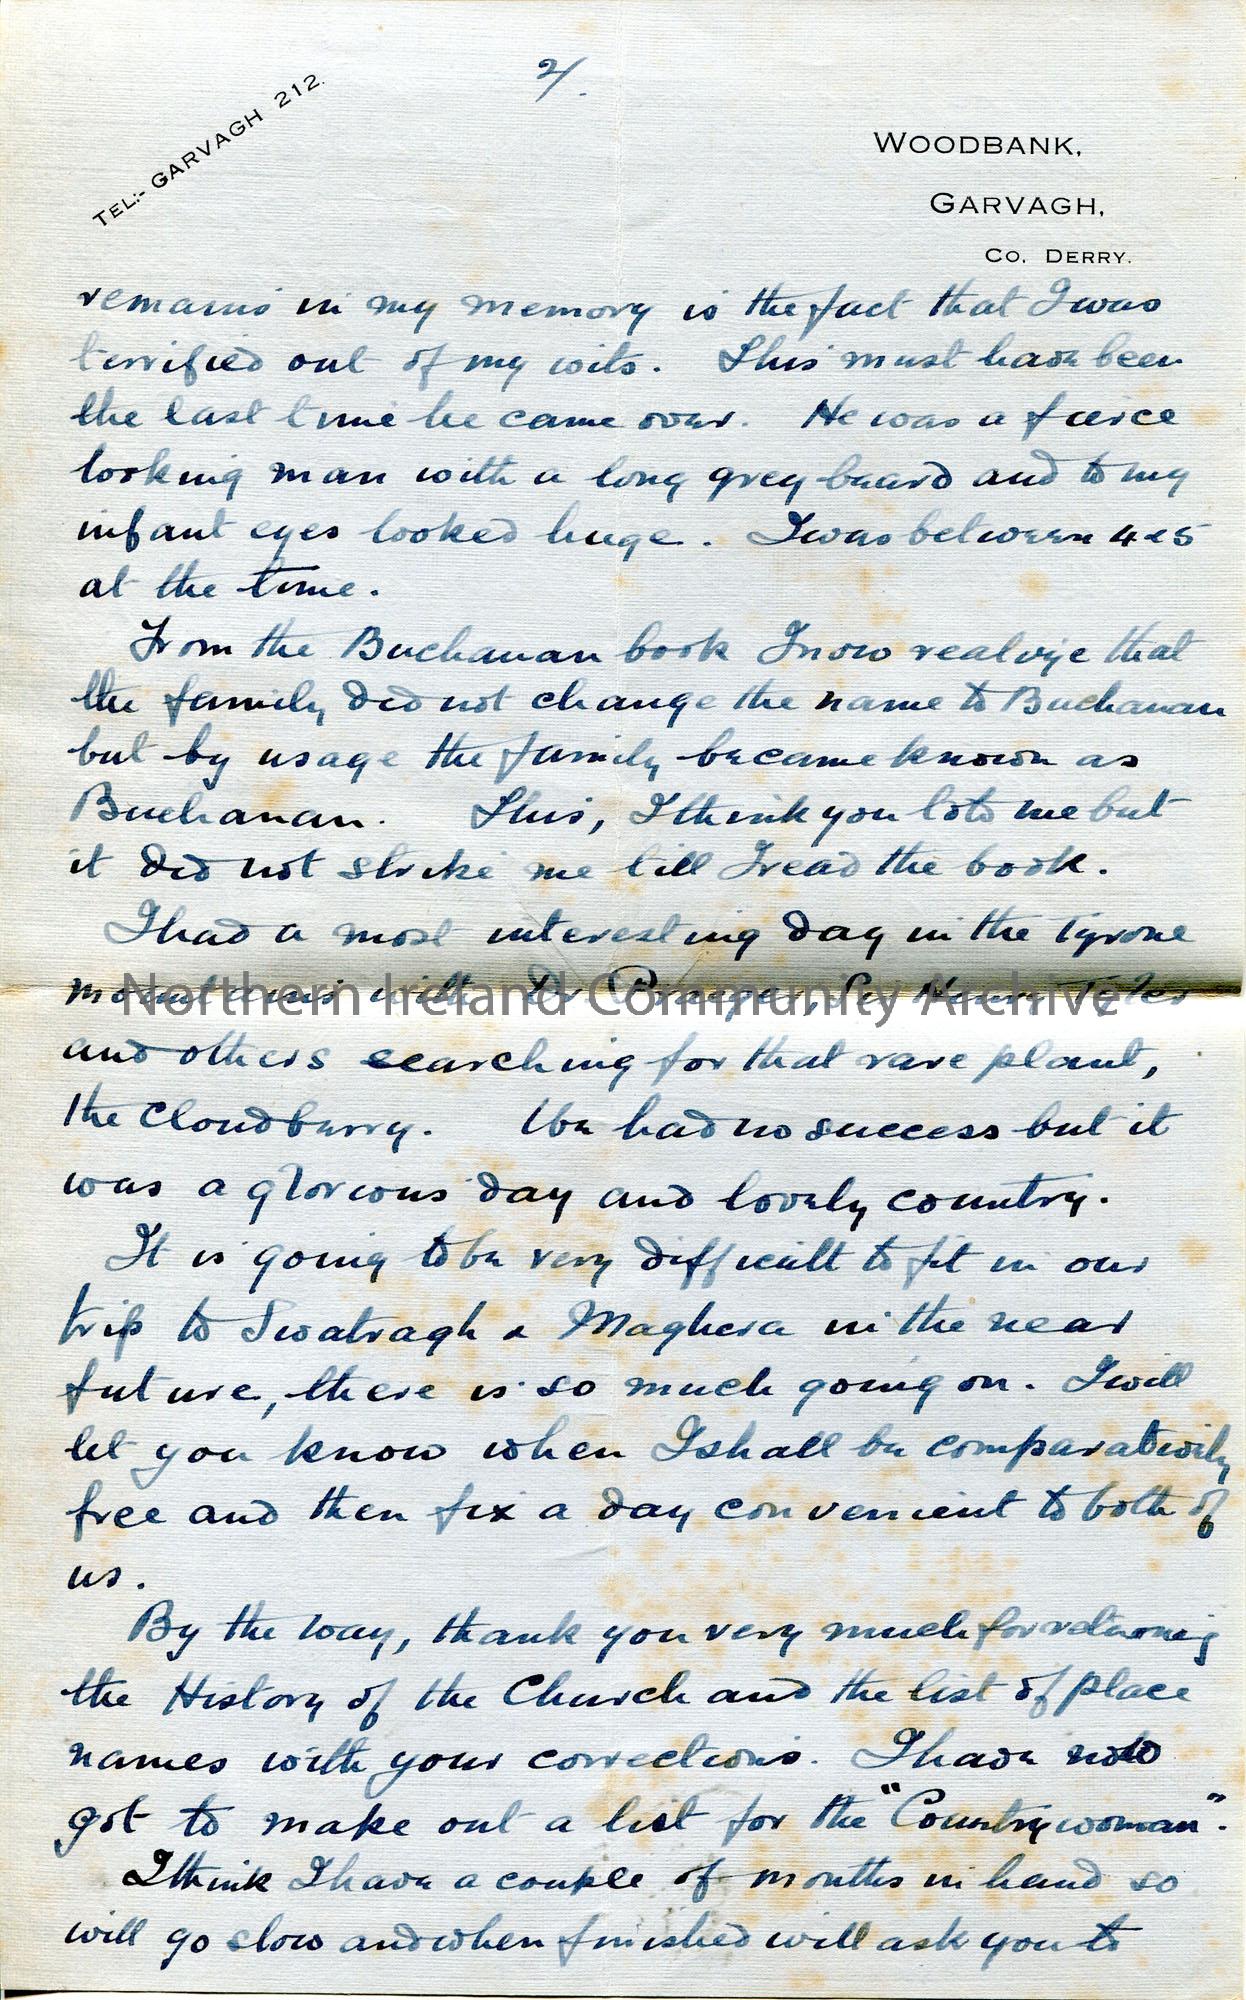 2/.
TEL:- GARVAGH 212.
WOODBANK,
GARVAGH,
CO. DERRY.
remains in my memory is the fact that I was
terrified out of my wits. This must have been
the last time he came over. He was a fierce
looking man with a long grey beard and to my
infant eyes looked huge. I was between 4 & 5
at the time.
From the Buchanan book I now realize that
the family did not change the name to Buchanan
but by usage the family became known as
Buchanan. This, I think you told me but
it did not strike me till I read the book.
I had a most interesting day in the Tyrone
mountains with Dr. Praeger, Sir Henry Tyler
Northern Ireland Community Archive
and others searching for that rare plant,
the Cloudberry. We had no success but it
was a glorious day and lovely country.
It is going to be very difficult to fit in our
trip to Swatragh & Maghera in the near
future, there is so much going on. I will
let you know when I shall be comparatively
free and then fix a day convenient to both of
us.
By the way, thank you very much for returning
the History of the Church and the list of place
names with your corrections. I have now
got to make out a list for the "Countrywoman".
I think I have a couple of months in hand so
will go slow and when finished will ask you to